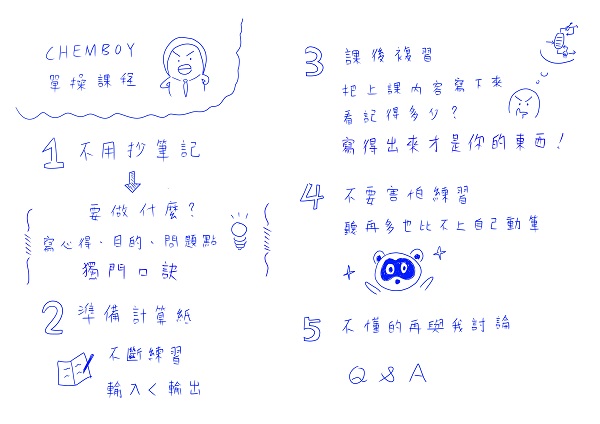 CHEMBOY
單操課程
1 不用抄筆記
要做什麼?
寫心得、目的、問題點
獨門口訣
2 準備計算紙
不斷練習
輸入<輸出
3 課後複習
把上課內容寫下來
看記得多少?
寫得出來才是你的東西!
4 不要害怕練習
聽再多也比不上自己動筆
5 不懂的再與我討論
Q & A